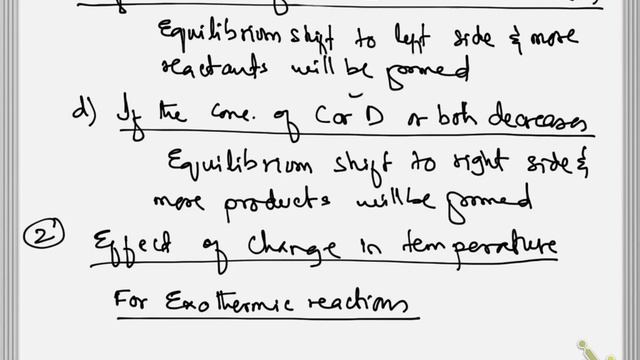 Equilibrium shift to left side & more
reactants will be formed
d) If the conc. of C or D or both decreases
Equilibrium shift to right side &
more products will be formed
2) Effect of Change in temperature
For Exothermic reactions